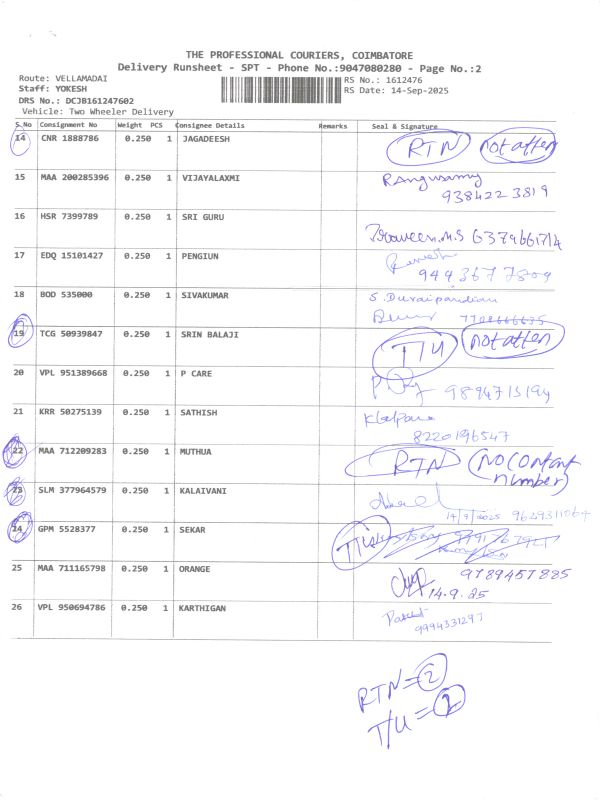 THE PROFESSIONAL COURIERS, COIMBATORE
Delivery Runsheet - SPT - Phone No.:9047080280 - Page No.:2
Route: VELLAMADAI
Staff: YOKESH
DRS No.: DCJB161247602
Vehicle: Two Wheeler Delivery
RS No.: 1612476
RS Date: 14-Sep-2025
S.No Consignment No Weight PCS Consignee Details Remarks Seal & Signature
14 CNR 1888786 0.250 1 JAGADEESH RTN not atten
15 MAA 200285396 0.250 1 VIJAYALAXMI Rangusamy
9384223819
16 HSR 7399789 0.250 1 SRI GURU Praveen.M.S 6379661714
17 EDQ 15101427 0.250 1 PENGIUN
9443677809
18 BOD 535000 0.250 1 SIVAKUMAR S. Duraipandian
7708666635
19 TCG 50939847 0.250 1 SRIN BALAJI T/U not atten
20 VPL 951389668 0.250 1 P CARE 9894715194
21 KRR 50275139 0.250 1 SATHISH Kalpana
8220196547
22 MAA 712209283 0.250 1 MUTHUA RTN (NO Contant number)
23 SLM 377964579 0.250 1 KALAIVANI
14/9/2025 9629311064
24 GPM 5528377 0.250 1 SEKAR T/U
25 MAA 711165798 0.250 1 ORANGE 9789457885
14.9.25
26 VPL 950694786 0.250 1 KARTHIGAN
9994331297
RTN = 2
T/U = 2